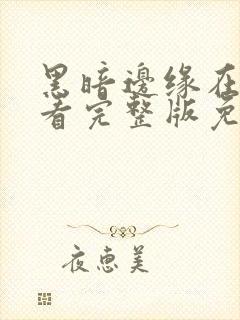 黑暗邊缘在
看完整版免
夜惠美